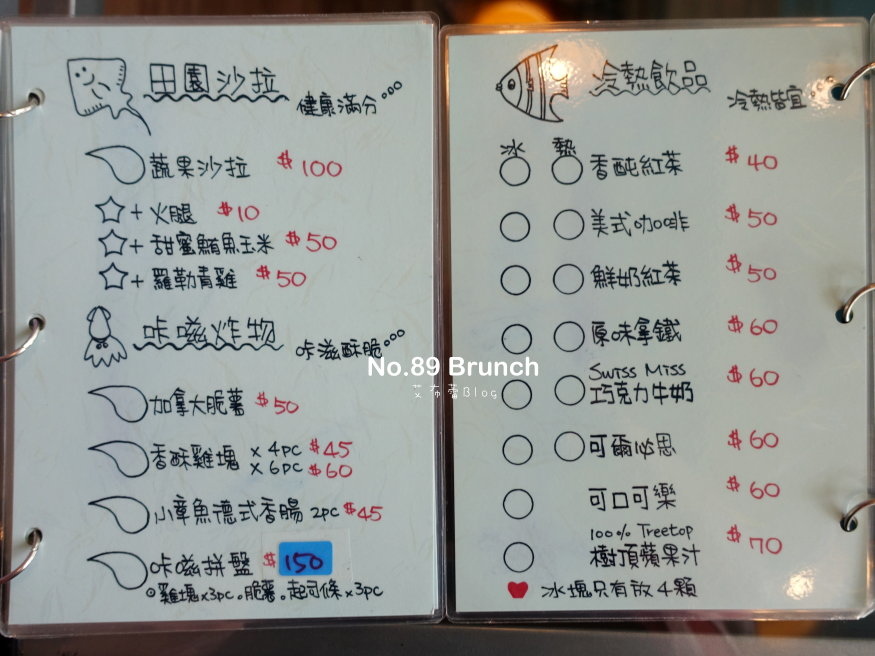 田園沙拉
健康滿分
蔬果沙拉 $100
+火腿 $10
+甜蜜鮪魚玉米 $50
+羅勒青雞 $50
咔嗞炸物
咔滋酥脆
加拿大脆薯 $50
香酥雞塊 x 4pc $45
x 6pc $60
小章魚德式香腸 2pc $45
咔嗞拼盤 $150
雞塊x3pc。脆薯。起司條x3pc
冷熱飲品
冷熱皆宜
冰 熱
香醇紅茶 $40
美式咖啡 $50
鮮奶紅茶 $50
原味拿鐵 $60
Swiss Miss
巧克力牛奶 $60
可爾必思 $60
可口可樂 $60
100% Treetop
樹頂蘋果汁 $70
冰塊只有放4顆
No.89 Brunch
艾布蕾Blog